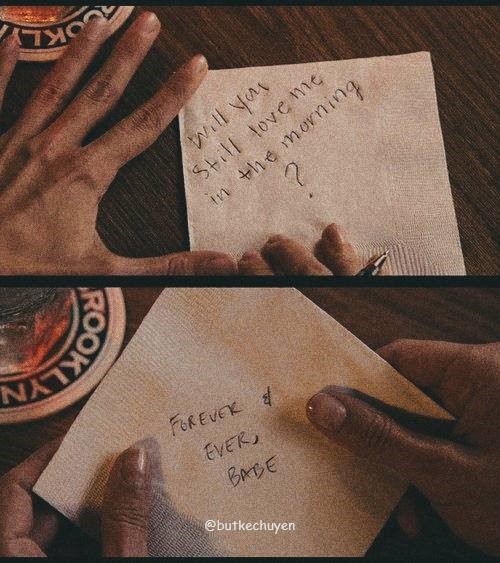 ROOKLYN
Will you
still love me
in the morning
?
ROOKLYN
FOREVER &
EVER,
BABE
@butkechuyen